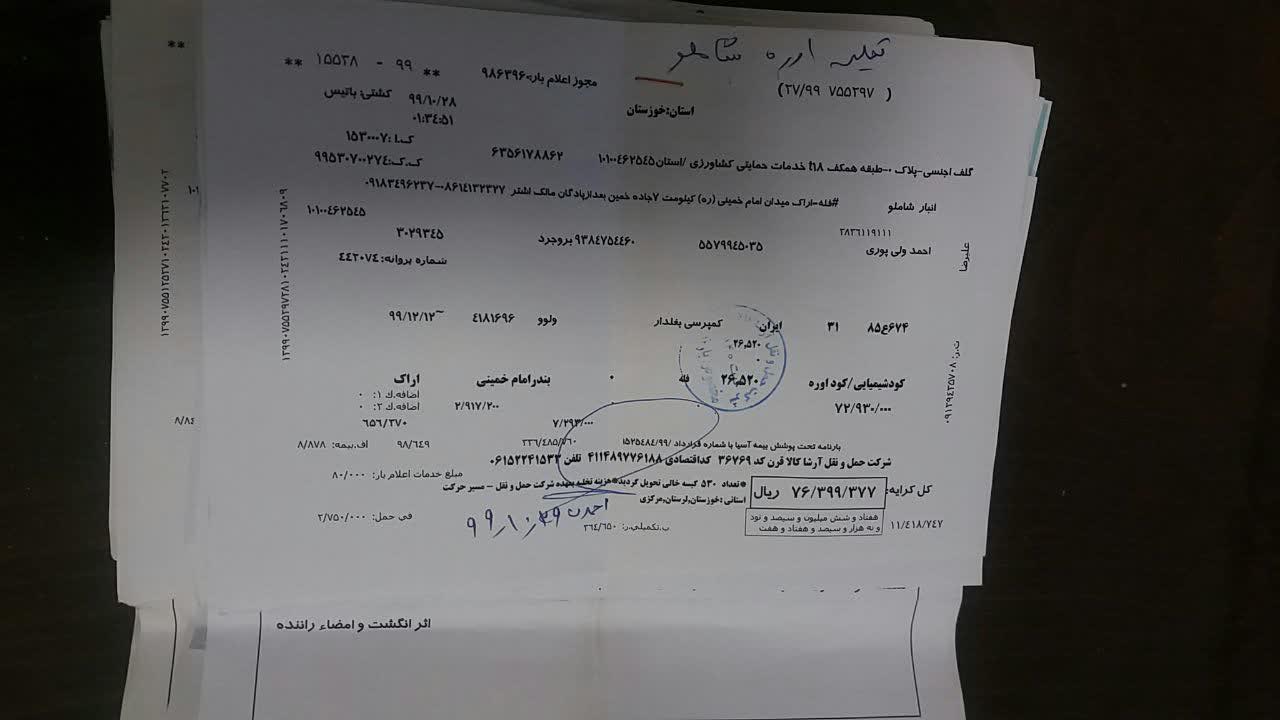 ** ۱۵۵۳۸ - ۹۹ **
مجوز اعلام بار:۹۸۶۳۹۶
(۲۷/۹۹ ۷۵۵۲۹۷ )
۹۹/۱۰/۲۸ کشتی: باتیس
استان:خوزستان
۰۱:۳۴:۵۱
ک.ا: ۱۵۳۰۰۰۷
گلف اجنسی-پلاک ۰-طبقه همکف t۱۸ خدمات حمایتی کشاورزی /استان۱۰۱۰۰۴۶۲۵۴۵ ۶۳۵۶۱۷۸۸۶۲ ک.ک:۹۹۵۳۰۷۰۰۲۷۴
انبار شاملو #فله-اراک میدان امام خمینی (ره) کیلومت ۷جاده خمین بعدازپادگان مالک اشتر ۰۸۶۱۴۱۳۲۳۲۷-۰۹۱۸۳۴۹۶۲۳۷
۲۸۳۶۱۱۹۱۱۱ ۱۰۱۰۰۴۶۲۵۴۵
احمد ولی پوری ۵۵۷۹۹۴۵۰۳۵ ۹۳۸۴۷۵۴۴۶۰ بروجرد ۳۰۲۹۳۴۵
شماره پروانه: ۴۴۲۰۷۴
علیرضا
۶۷۴ع۸۵ ۳۱ ایران کمپرسی بغلدار ولوو ۴۱۸۱۶۹۶ ~۹۹/۱۲/۱۲
۲۶,۵۲۰
۰
کودشیمیایی/کود اوره ۲۶,۵۲۰ فله ۰ بندرامام خمینی اراک
۷۲/۹۳۰/۰۰۰ ۲/۹۱۷/۲۰۰ اضافه.ک ۱: ۰
اضافه.ک ۲: ۰
۷/۲۹۳/۰۰۰ ۶۵۶/۳۷۰
بارنامه تحت پوشش بیمه آسیا با شماره قرارداد /۱۵۲۵۴۸۴/۹۹ ۹۸/۶۴۹ اف.بیمه: ۸/۸۷۸
شرکت حمل و نقل آرشا کالا قرن کد ۳۶۷۶۹ کداقتصادی ۴۱۱۴۸۹۷۷۶۱۸۸ تلفن ۰۶۱۵۲۲۴۱۵۳۳
کل کرایه: ۷۶/۳۹۹/۳۷۷ ریال
*تعداد ۵۳۰ کیسه خالی تحویل گردید*هزینه تخلیه بعهده شرکت حمل و نقل - مسیر حرکت
استانی :خوزستان,لرستان,مرکزی
مبلغ خدمات اعلام بار: ۸۰/۰۰۰
۱۱/۴۱۸/۷۴۷ هفتاد و شش میلیون و سیصد و نود
و نه هزار و سیصد و هفتاد و هفت
ب.تکمیلی.ر: ۲۶۴/۶۵۰ في حمل: ۲/۷۵۰/۰۰۰
اثر انگشت و امضاء راننده